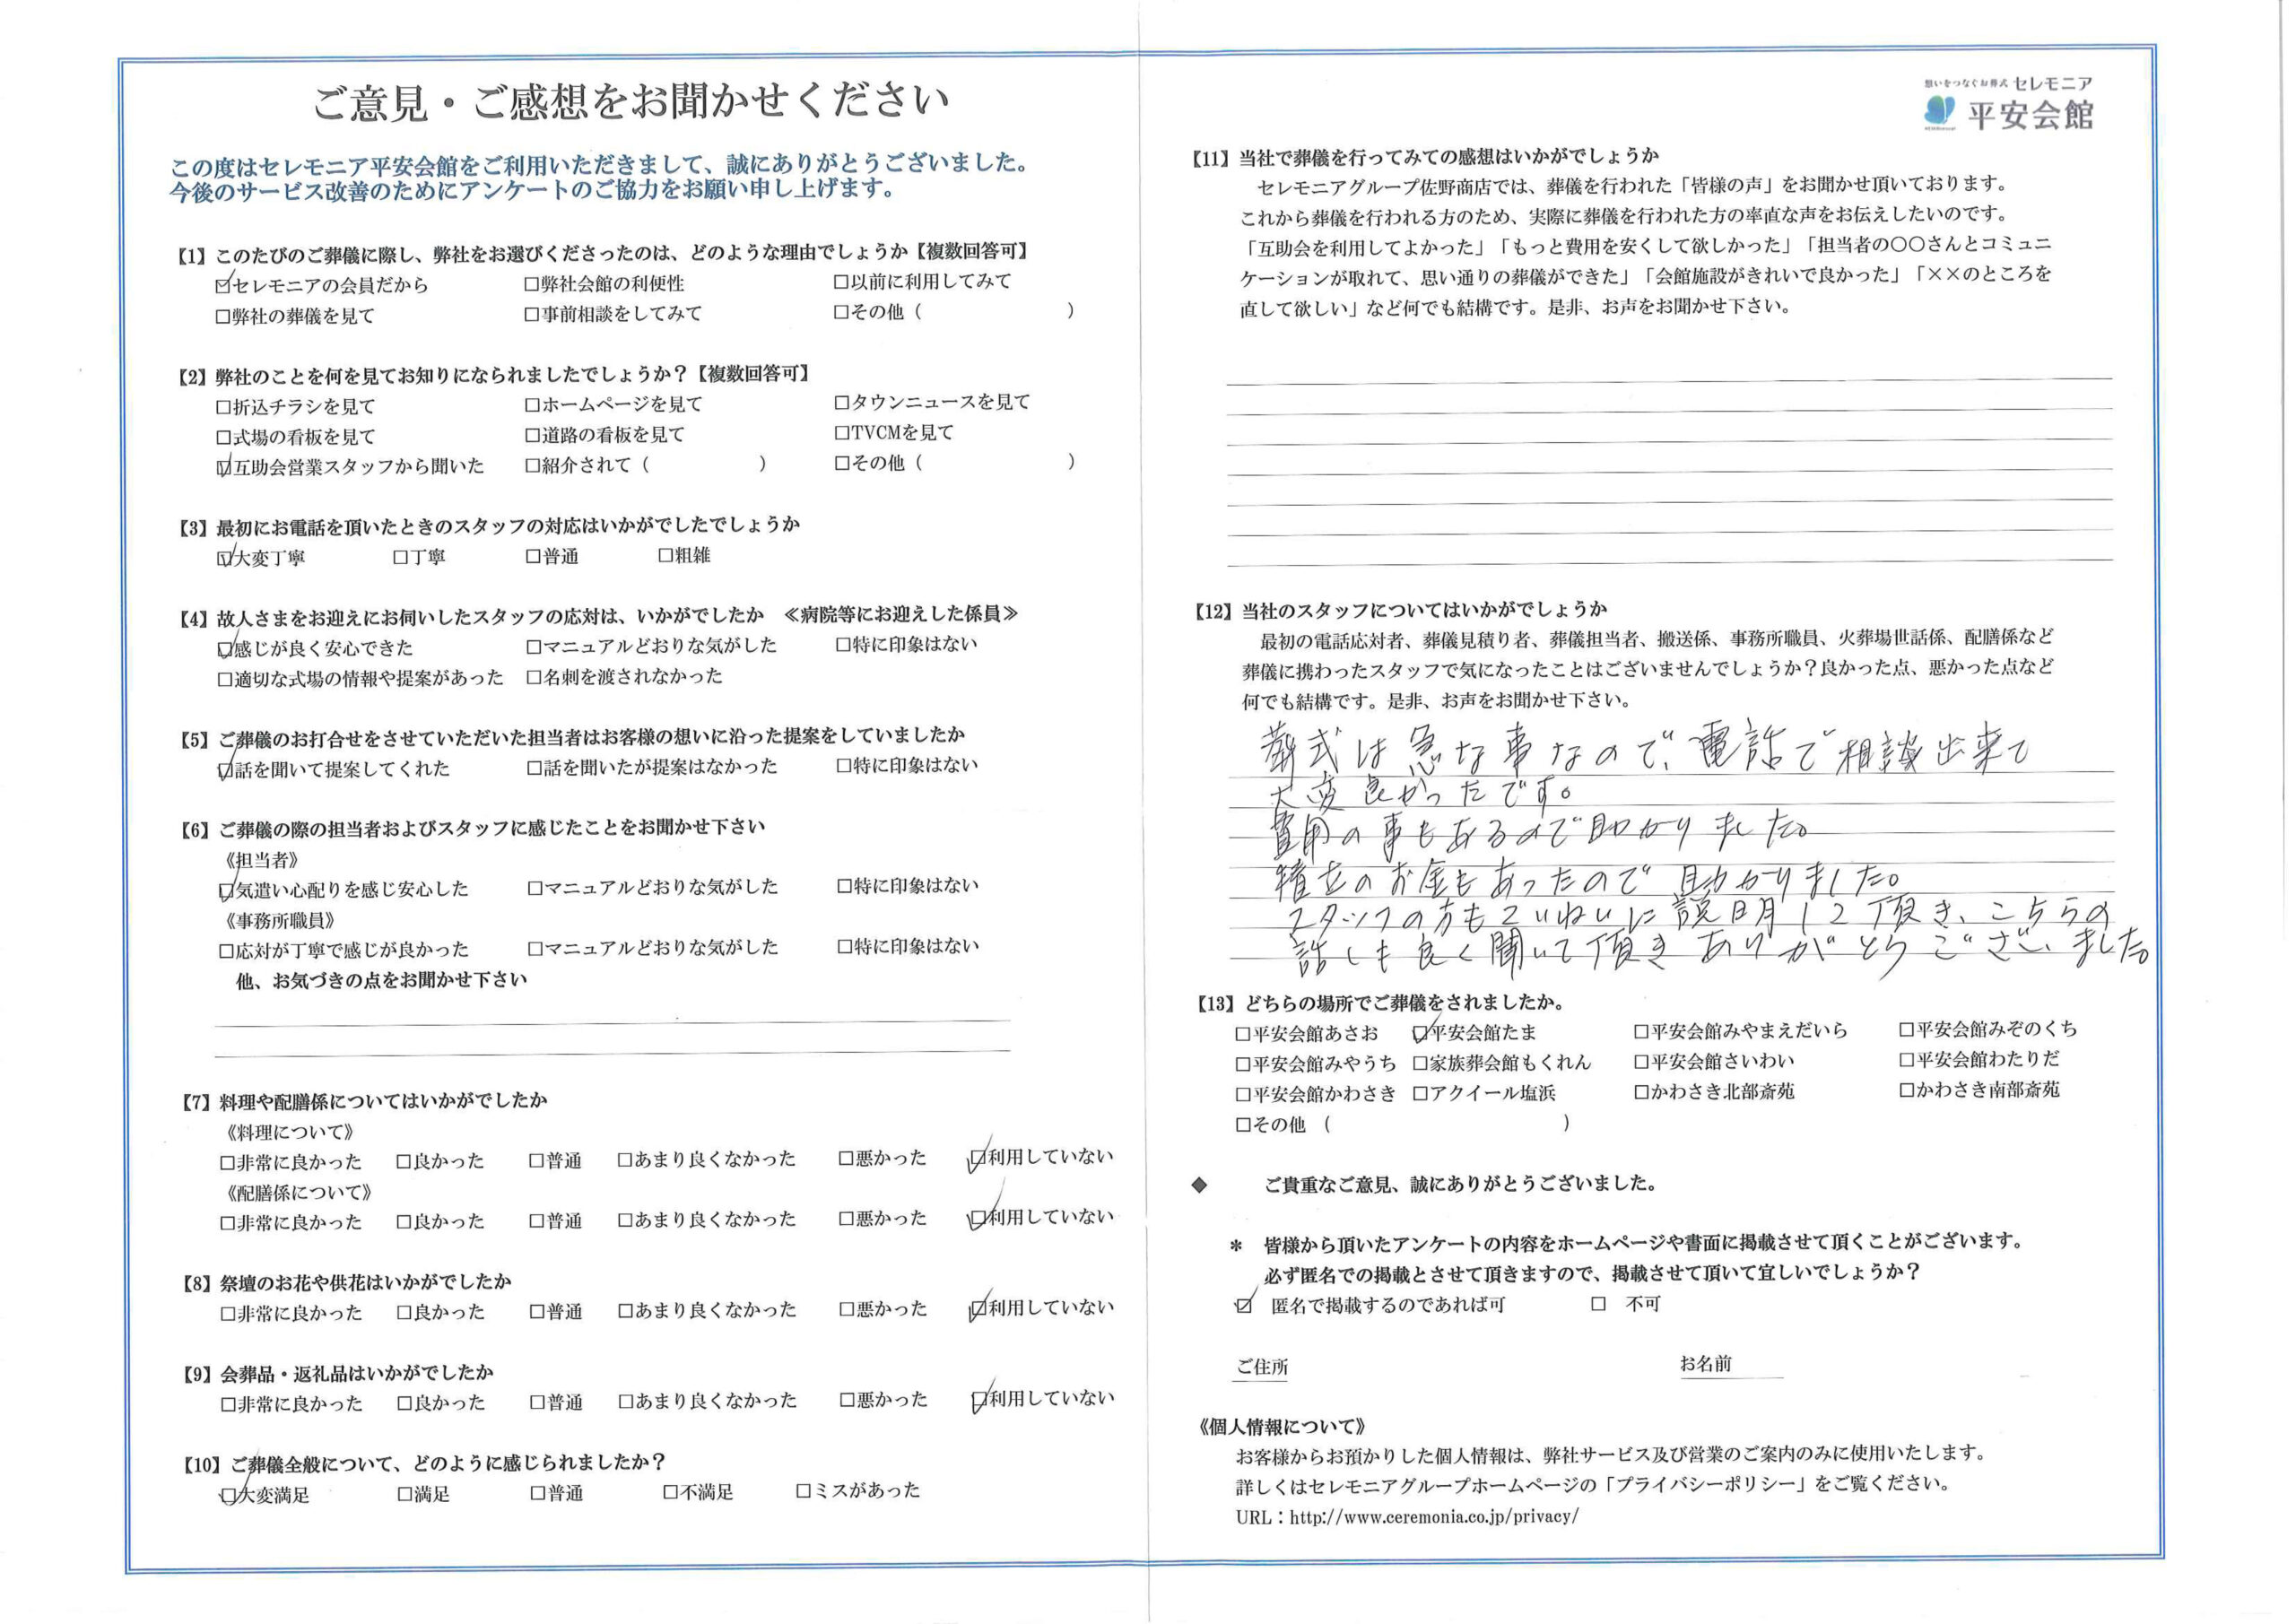 ご意見・ご感想をお聞かせください
この度はセレモニア平安会館をご利用いただきまして、誠にありがとうございました。
今後のサービス改善のためにアンケートのご協力をお願い申し上げます。
【1】このたびのご葬儀に際し、弊社をお選びくださったのは、どのような理由でしょうか【複数回答可】
☑セレモニアの会員だから □弊社会館の利便性 □以前に利用してみて
□弊社の葬儀を見て □事前相談をしてみて □その他（ ）
【2】弊社のことを何を見てお知りになられましたでしょうか？【複数回答可】
□折込チラシを見て □ホームページを見て □タウンニュースを見て
□式場の看板を見て □道路の看板を見て □TVCMを見て
☑互助会営業スタッフから聞いた □紹介されて（ ） □その他（ ）
【3】最初にお電話を頂いたときのスタッフの対応はいかがでしたでしょうか
☑大変丁寧 □丁寧 □普通 □粗雑
【4】故人さまをお迎えにお伺いしたスタッフの応対は、いかがでしたか ≪病院等にお迎えした係員≫
☑感じが良く安心できた □マニュアルどおりな気がした □特に印象はない
□適切な式場の情報や提案があった □名刺を渡されなかった
【5】ご葬儀のお打合せをさせていただいた担当者はお客様の想いに沿った提案をしていましたか
☑話を聞いて提案してくれた □話を聞いたが提案はなかった □特に印象はない
【6】ご葬儀の際の担当者およびスタッフに感じたことをお聞かせ下さい
《担当者》
☑気遣い心配りを感じ安心した □マニュアルどおりな気がした □特に印象はない
《事務所職員》
□応対が丁寧で感じが良かった □マニュアルどおりな気がした □特に印象はない
他、お気づきの点をお聞かせ下さい
【7】料理や配膳係についてはいかがでしたか
《料理について》
□非常に良かった □良かった □普通 □あまり良くなかった □悪かった ☑利用していない
《配膳係について》
□非常に良かった □良かった □普通 □あまり良くなかった □悪かった ☑利用していない
【8】祭壇のお花や供花はいかがでしたか
□非常に良かった □良かった □普通 □あまり良くなかった □悪かった ☑利用していない
【9】会葬品・返礼品はいかがでしたか
□非常に良かった □良かった □普通 □あまり良くなかった □悪かった ☑利用していない
【10】ご葬儀全般について、どのように感じられましたか？
☑大変満足 □満足 □普通 □不満足 □ミスがあった
想いをつなぐお葬式 セレモニア
平安会館
【11】当社で葬儀を行ってみての感想はいかがでしょうか
セレモニアグループ佐野商店では、葬儀を行われた「皆様の声」をお聞かせ頂いております。
これから葬儀を行われる方のため、実際に葬儀を行われた方の率直な声をお伝えしたいのです。
「互助会を利用してよかった」「もっと費用を安くして欲しかった」「担当者の〇〇さんとコミュニ
ケーションが取れて、思い通りの葬儀ができた」「会館施設がきれいで良かった」「××のところを
直して欲しい」など何でも結構です。是非、お声をお聞かせ下さい。
【12】当社のスタッフについてはいかがでしょうか
最初の電話応対者、葬儀見積り者、葬儀担当者、搬送係、事務所職員、火葬場世話係、配膳係など
葬儀に携わったスタッフで気になったことはございませんでしょうか？良かった点、悪かった点など
何でも結構です。是非、お声をお聞かせ下さい。
葬式は急な事なので、電話で相談出来て
大変良かったです。
費用の事もあるので助かりました。
積立のお金もあったので助かりました。
スタッフの方もていねいに説明して頂き、こちらの
話しも良く聞いて頂きありがとうございました。
【13】どちらの場所でご葬儀をされましたか。
□平安会館あさお ☑平安会館たま □平安会館みやまえだいら □平安会館みぞのくち
□平安会館みやうち □家族葬会館もくれん □平安会館さいわい □平安会館わたりだ
□平安会館かわさき □アクイール塩浜 □かわさき北部斎苑 □かわさき南部斎苑
□その他 （ ）
◆ ご貴重なご意見、誠にありがとうございました。
＊ 皆様から頂いたアンケートの内容をホームページや書面に掲載させて頂くことがございます。
必ず匿名での掲載とさせて頂きますので、掲載させて頂いて宜しいでしょうか？
☑ 匿名で掲載するのであれば可 □ 不可
ご住所 お名前
《個人情報について》
お客様からお預かりした個人情報は、弊社サービス及び営業のご案内のみに使用いたします。
詳しくはセレモニアグループホームページの「プライバシーポリシー」をご覧ください。
URL：http://www.ceremonia.co.jp/privacy/